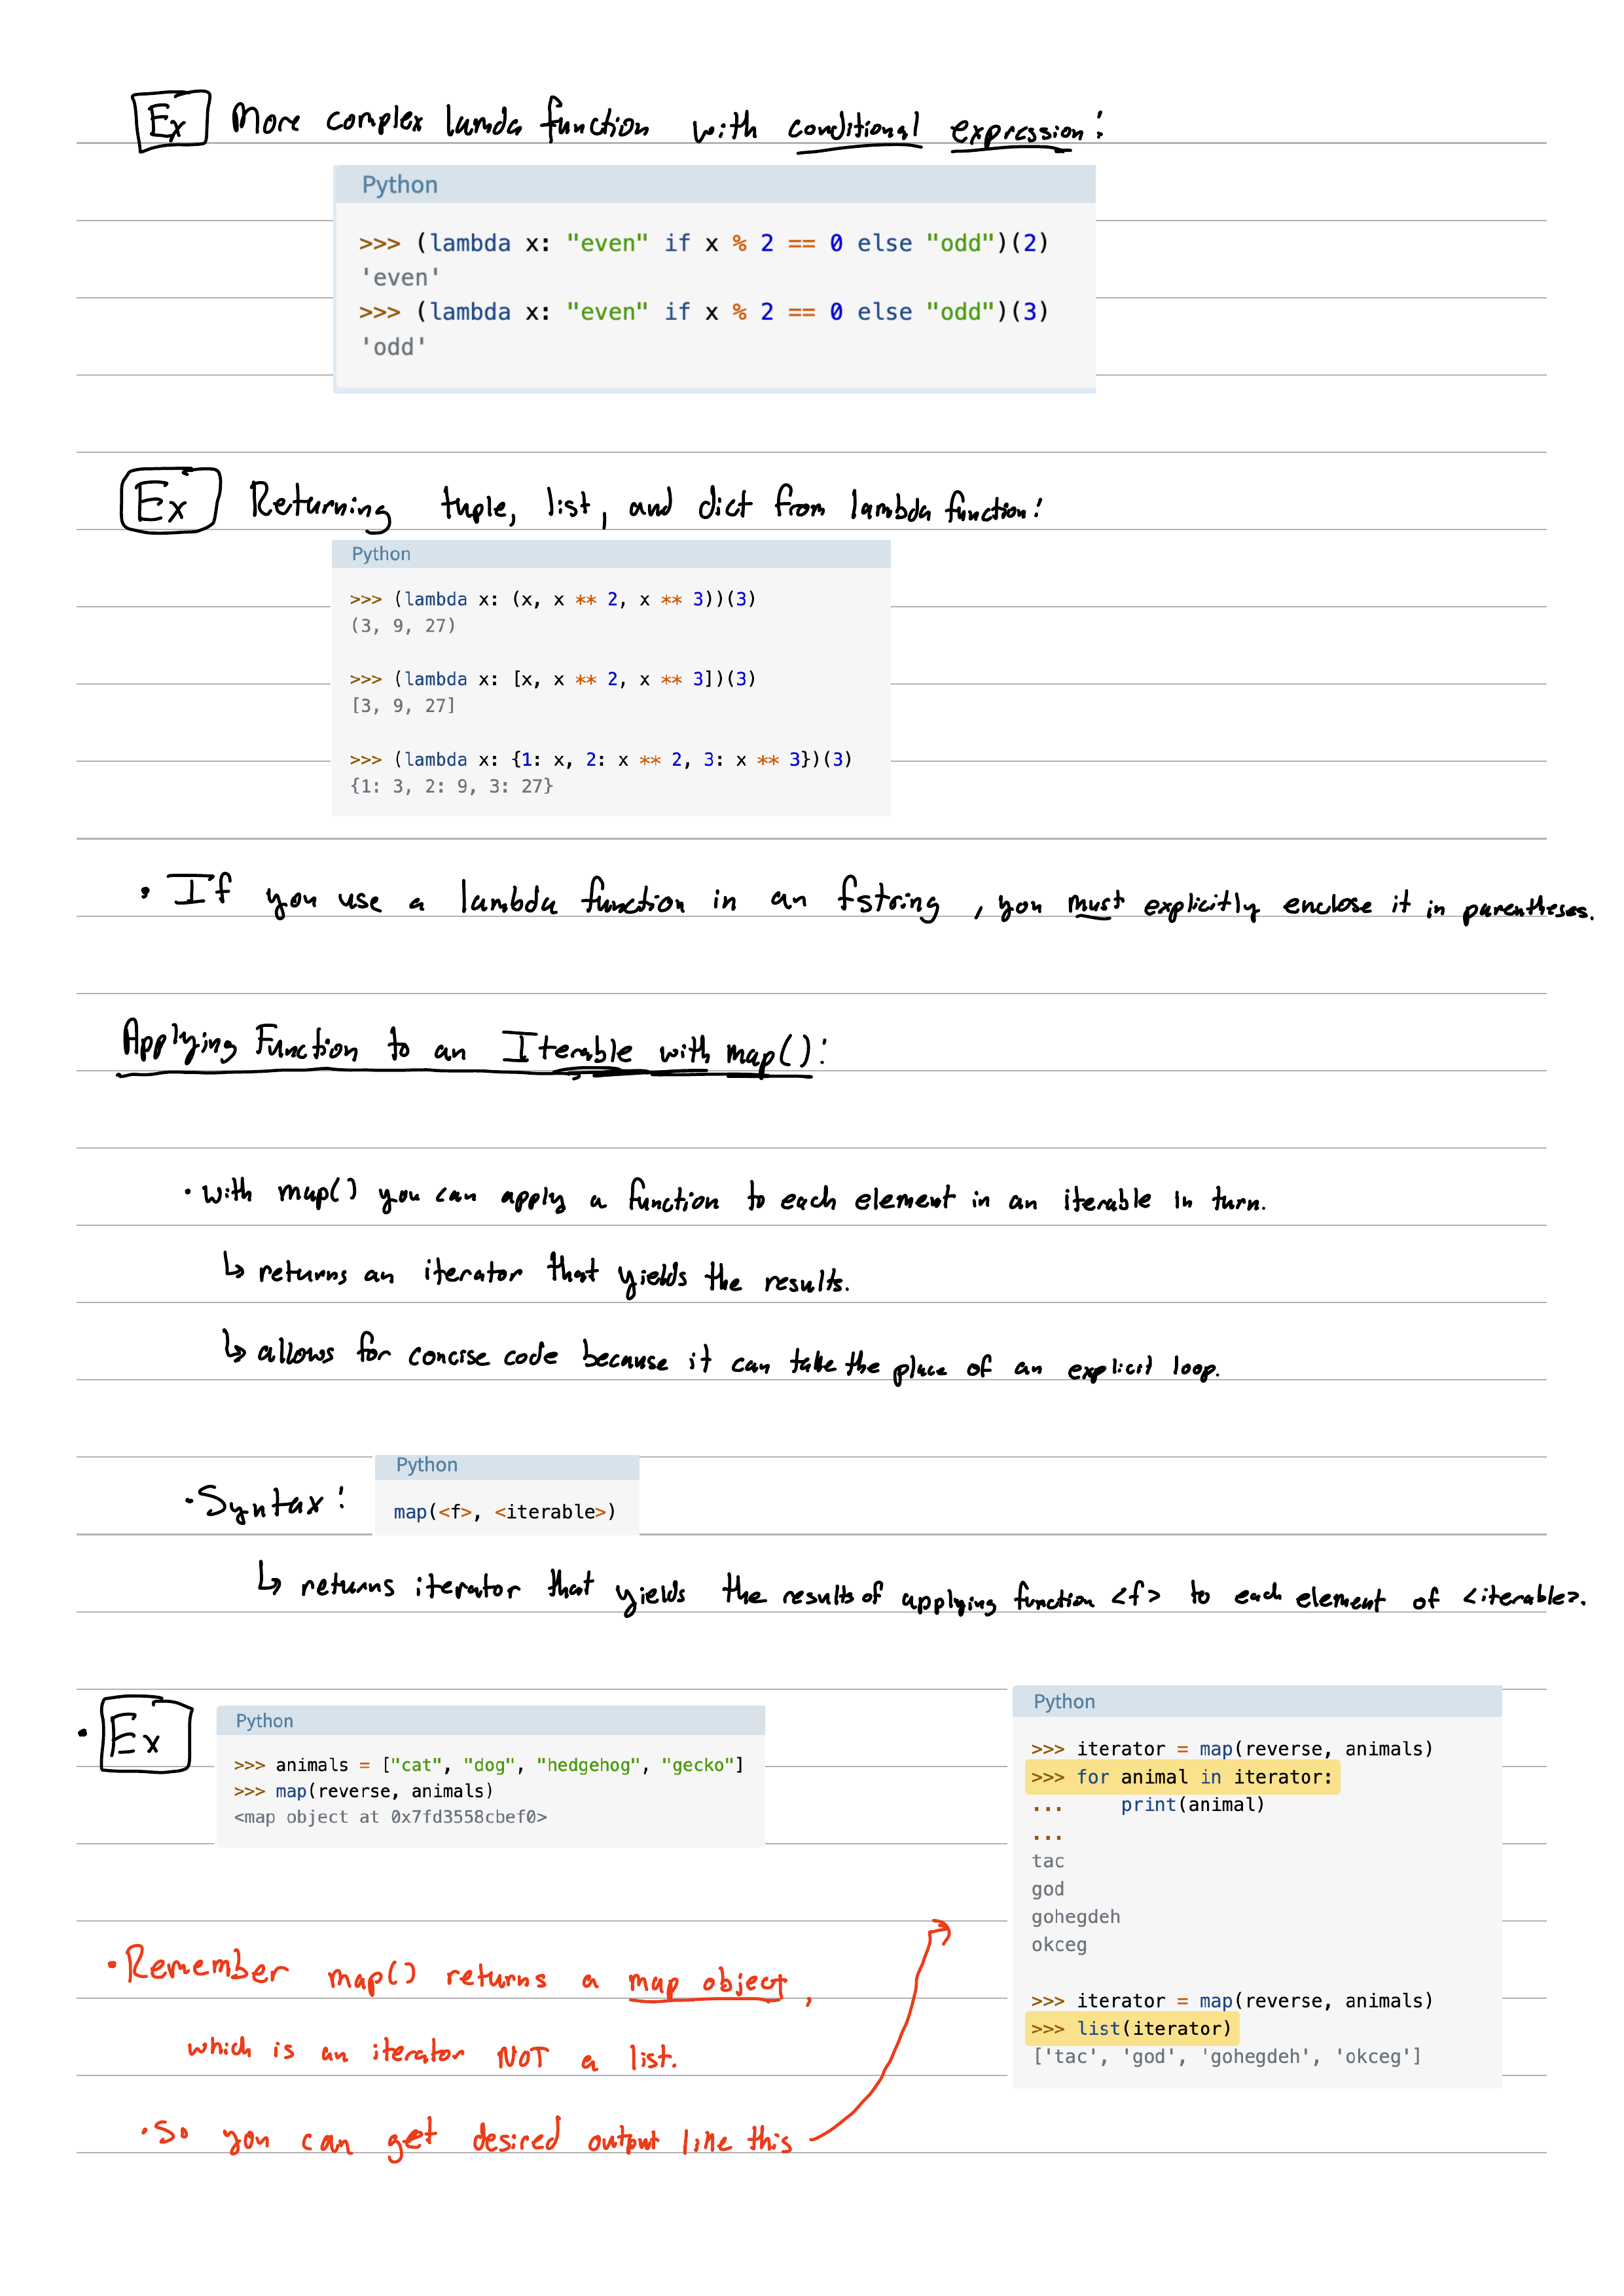 Ex More complex lamda function with conditional expression:
Python
>>> (lambda x: "even" if x % 2 == 0 else "odd")(2)
'even'
>>> (lambda x: "even" if x % 2 == 0 else "odd")(3)
'odd'
Ex Returning tuple, list, and dict from lambda function:
Python
>>> (lambda x: (x, x ** 2, x ** 3))(3)
(3, 9, 27)
>>> (lambda x: [x, x ** 2, x ** 3])(3)
[3, 9, 27]
>>> (lambda x: {1: x, 2: x ** 2, 3: x ** 3})(3)
{1: 3, 2: 9, 3: 27}
• If you use a lambda function in an fstring, you must explicitly enclose it in parentheses.
Applying Function to an Iterable with map():
• with map() you can apply a function to each element in an iterable in turn.
↳ returns an iterator that yields the results.
↳ allows for concise code because it can take the place of an explicit loop.
• Syntax:
Python
map(<f>, <iterable>)
↳ returns iterator that yields the results of applying function <f> to each element of <iterable>.
• Ex
Python
>>> animals = ["cat", "dog", "hedgehog", "gecko"]
>>> map(reverse, animals)
<map object at 0x7fd3558cbef0>
Python
>>> iterator = map(reverse, animals)
>>> for animal in iterator:
...     print(animal)
...
tac
god
gohegdeh
okceg
>>> iterator = map(reverse, animals)
>>> list(iterator)
['tac', 'god', 'gohegdeh', 'okceg']
• Remember map() returns a map object,
which is an iterator NOT a list.
• So you can get desired output like this